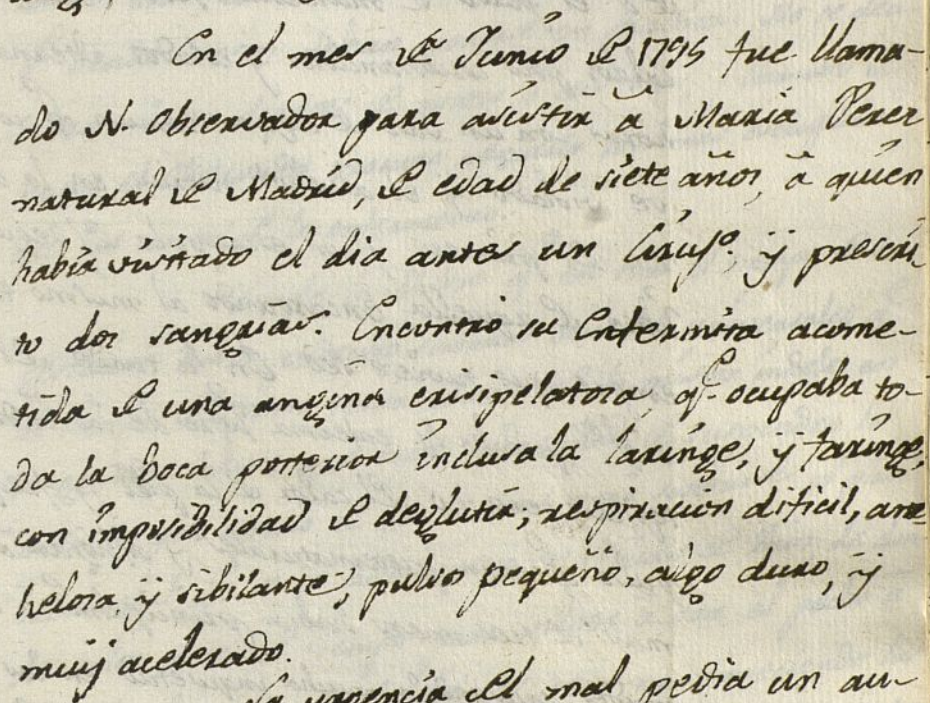 En el mes de Junio de 1795 fue llama-
do N. Observador para asistir à Maria Perez
natural de Madrid, de edad de siete años, à quien
habia visitado el dia antes un Ciruj.º, y prescri-
to dos sangrias. Encontrò su Enfermita acome-
tida de una angina erisipelatosa, q.e ocupaba to-
da la boca posterior inclusa la laringe, y faringe,
con imposibilidad de deglutir; respiracion dificil, ane-
helosa, y sibilante, pulso pequeño, algo duro, y
muy acelerado.
La urgencia del mal pedia un au-